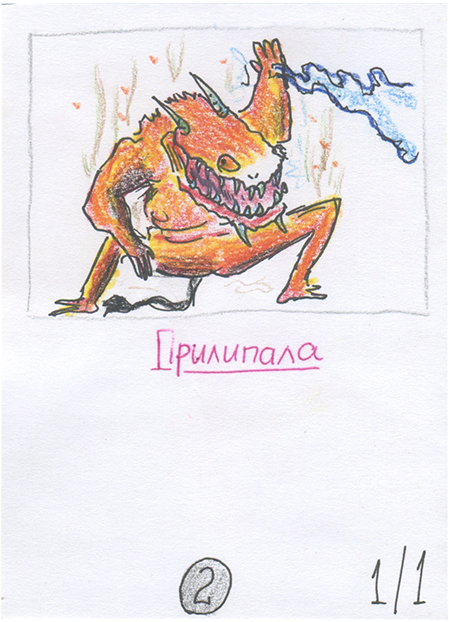 Прилипала
2
1/1